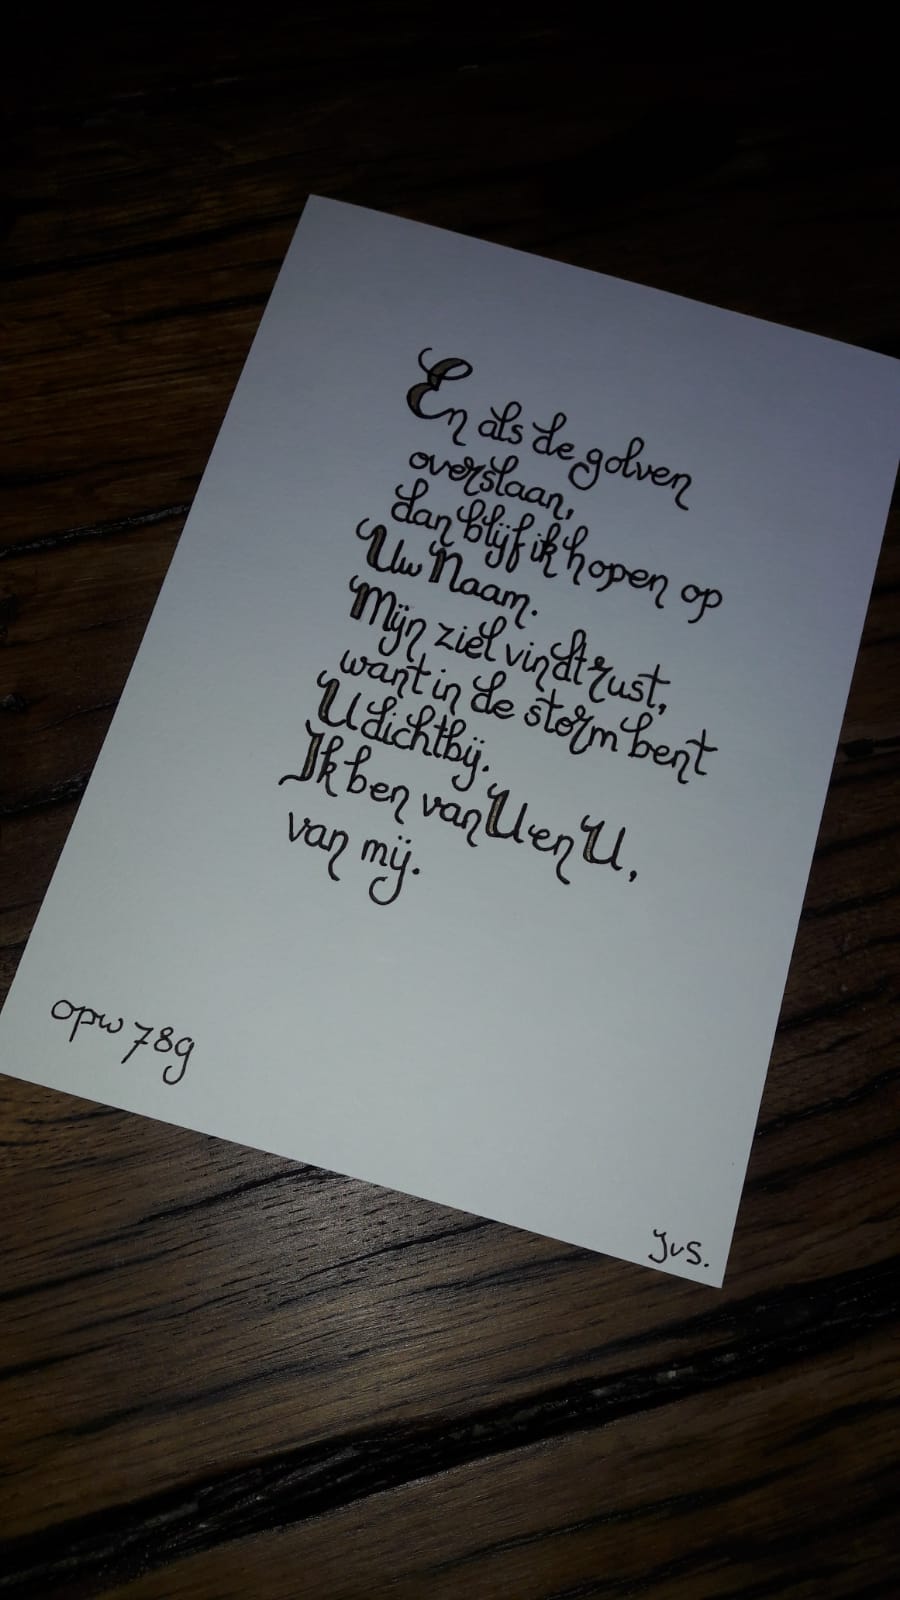 En als de golven
overslaan,
dan blijf ik hopen op
Uw Naam.
Mijn ziel vindt rust,
want in de storm bent
U dichtbij.
Ik ben van U en U,
van mij.
opw 789
JvS.